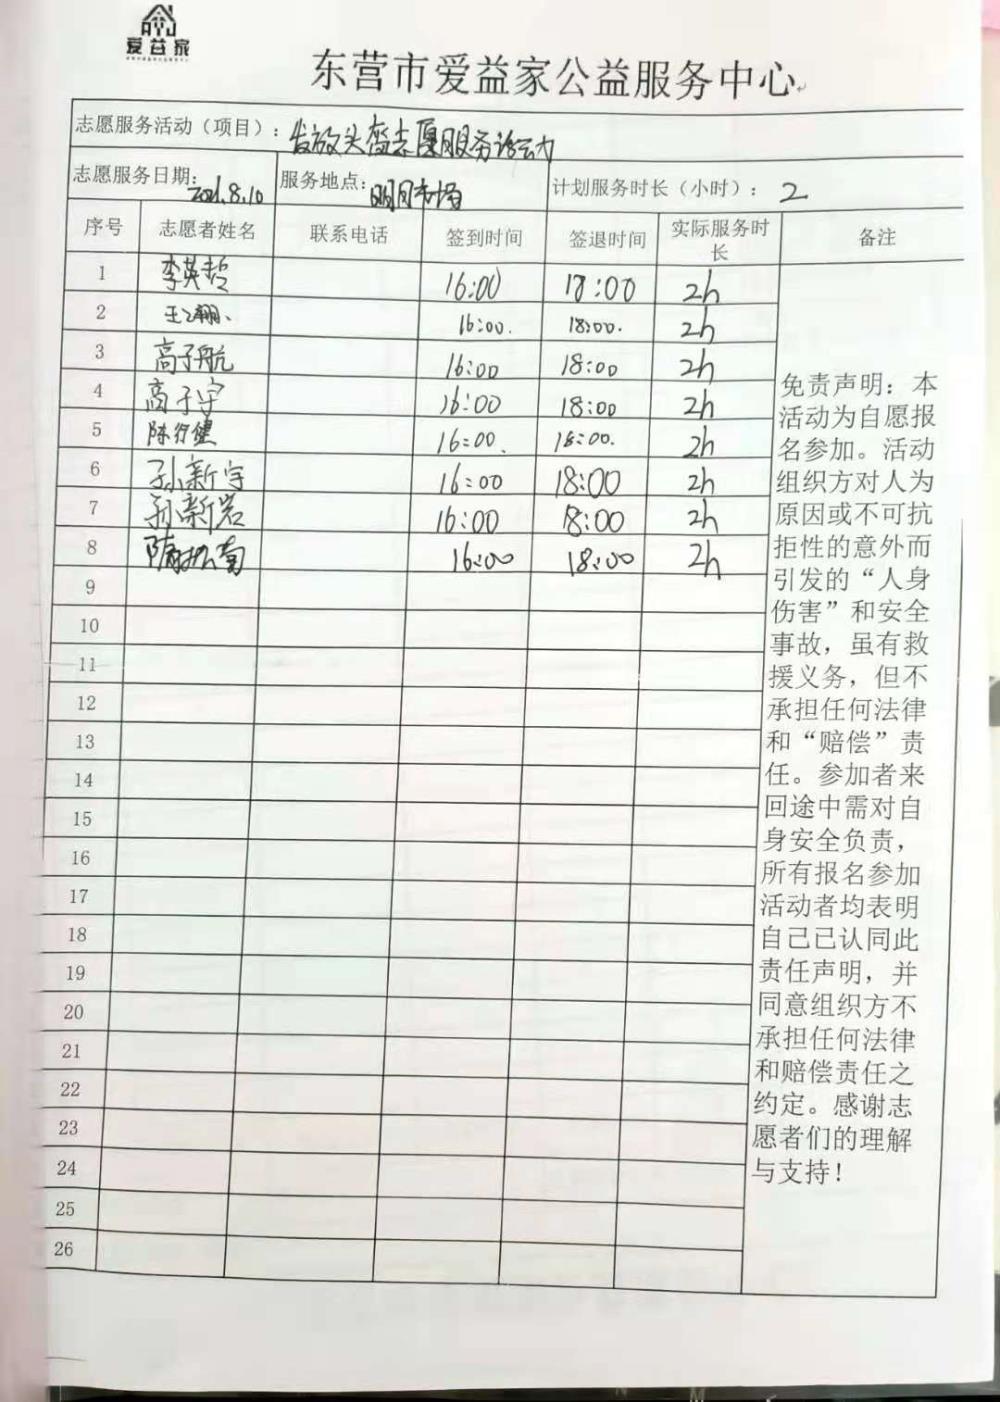 爱益家
东营市爱益家公益服务中心
志愿服务活动（项目）：发放头盔志愿服务活动
志愿服务日期：2021.8.10 服务地点：明月市场 计划服务时长（小时）：2
序号 志愿者姓名 联系电话 签到时间 签退时间 实际服务时长 备注
1 李英哲 16:00 18:00 2h
2 16:00. 18:00. 2h
3 高子航 16:00 18:00 2h
4 高子宇 16:00 18:00 2h
5 陈行健 16:00. 18:00. 2h
6 孙新宇 16:00 18:00 2h
7 孙新岩 16:00 18:00 2h
8 16:00 18:00 2h
9
10
11
12
13
14
15
16
17
18
19
20
21
22
23
24
25
26
免责声明：本
活动为自愿报
名参加。活动
组织方对人为
原因或不可抗
拒性的意外而
引发的“人身
伤害”和安全
事故，虽有救
援义务，但不
承担任何法律
和“赔偿”责
任。参加者来
回途中需对自
身安全负责，
所有报名参加
活动者均表明
自己已认同此
责任声明，并
同意组织方不
承担任何法律
和赔偿责任之
约定。感谢志
愿者们的理解
与支持！